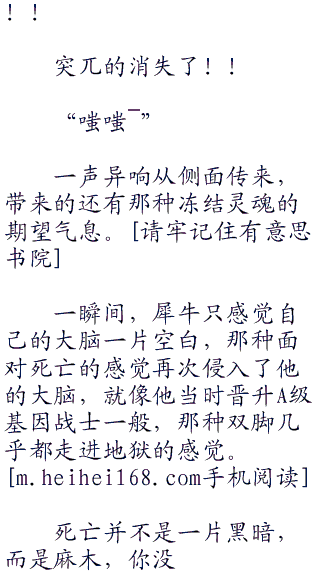 ！！
突兀的消失了！！
“嗤嗤¯”
一声异响从侧面传来，
带来的还有那种冻结灵魂的
期望气息。[请牢记住有意思
书院]
一瞬间，犀牛只感觉自
己的大脑一片空白，那种面
对死亡的感觉再次侵入了他
的大脑，就像他当时晋升A级
基因战士一般，那种双脚几
乎都走进地狱的感觉。
[m.heihei168.com手机阅读]
死亡并不是一片黑暗，
而是麻木，你没